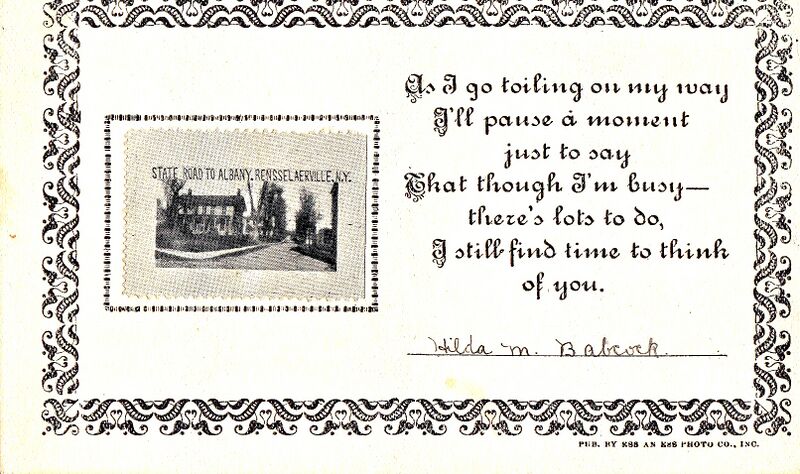 STATE ROAD TO ALBANY, RENSSELAERVILLE, N.Y.
As I go toiling on my way
I'll pause a moment
just to say
That though I'm busy—
there's lots to do,
I still find time to think
of you.
Hilda M. Babcock.
PUB. BY ESS AN ESS PHOTO CO., INC.